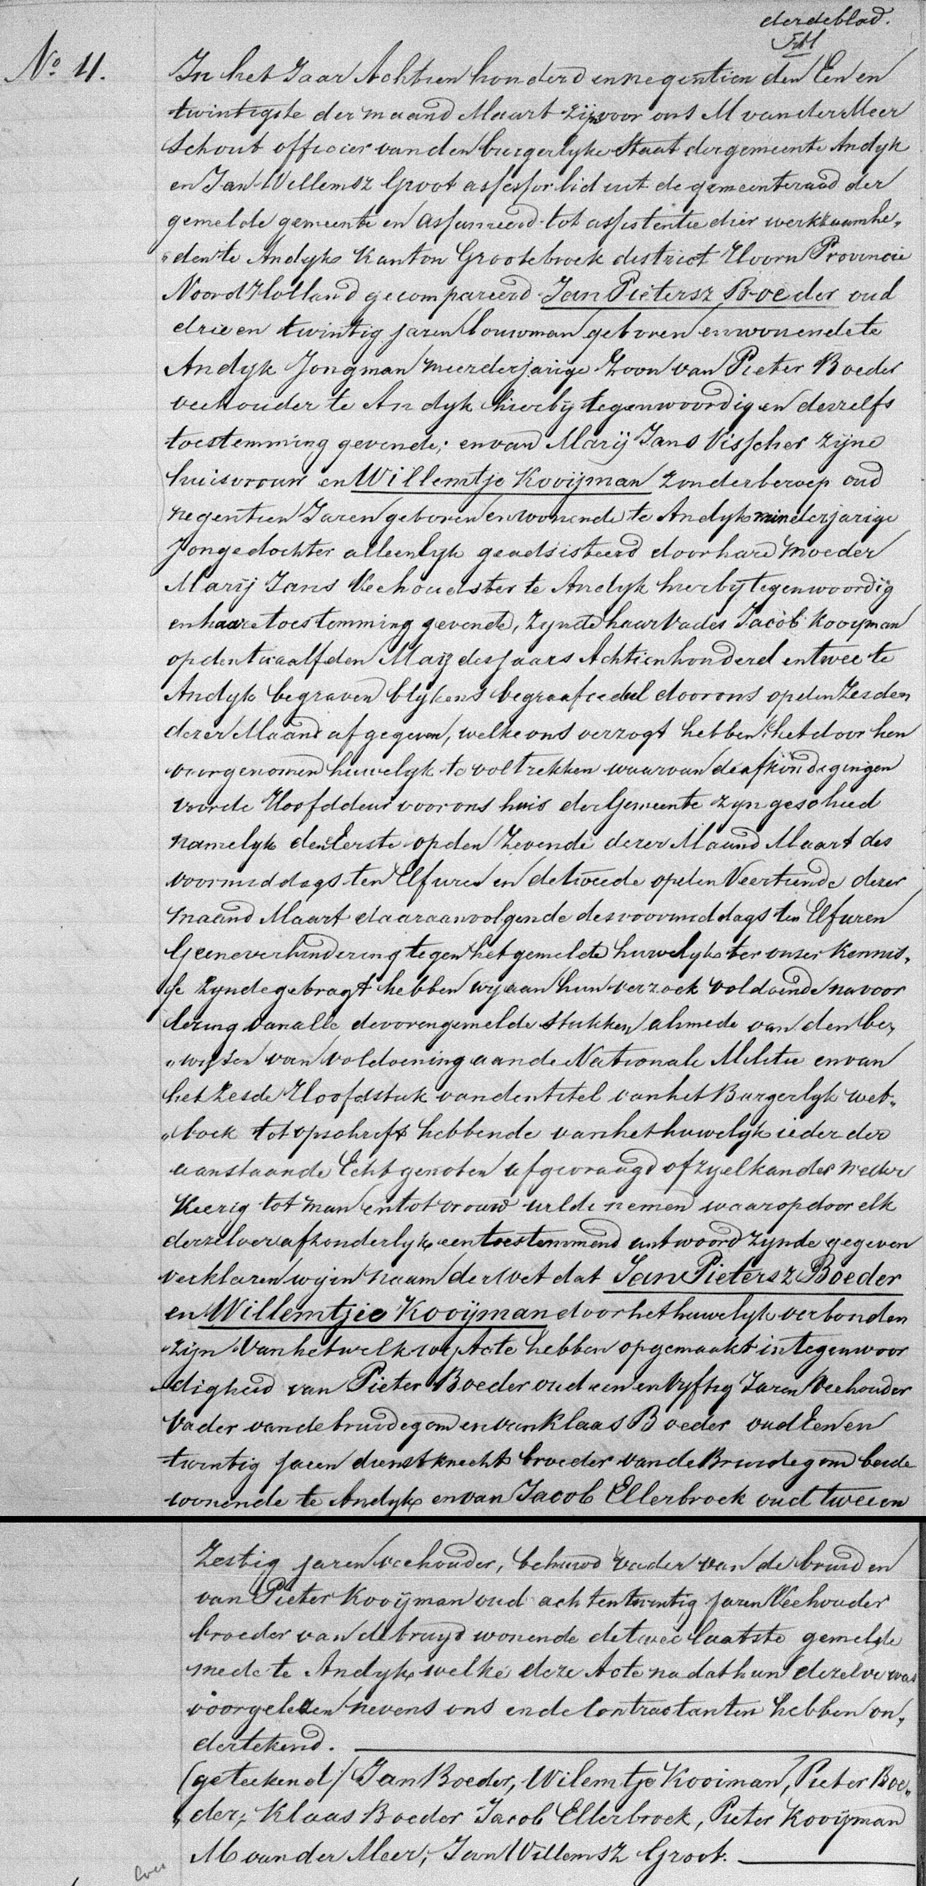 derdeblad.
No 11.
In het Jaar Achtien honderd en negentien den Een en
twintigste der maand Maart zijn voor ons M van der Meer
Schout officier van den burgerlyke Staat der gemeente Andyk
en Jan Willemsz Groot assessor lid uit de gemeenteraad der
gemelde gemeente en assumeerd tot assistentie dier werkzaamhe„
„den te Andyk Kanton Grootebroek district Hoorn Provincie
Noord Holland gecompareerd Jan Pietersz Boeder oud
drie en twintig jaren bouwman geboren en wonende te
Andyk Jongman meerderjarige Zoon van Pieter Boeder
veehouder te Andyk hierbij tegenwoordig en deszelfs
toestemming gevende; en van Marij Jans Visscher zijne
huisvrouw en Willemtje Kooijman zonder beroep oud
negentien Jaren geboren en wonende te Andyk minderjarige
Jongedochter alleenlyk geadsisteerd door hare Moeder
Marij Jans Veehoudster te Andyk hierbij tegenwoordig
en haare toestemming gevende, Zynde haar Vader Jacob Kooyman
op den twaalfden Maij des jaars Achtienhonderd en twee te
Andyk begraven blykens begraafcedul door ons op den Zesden
dezer Maand afgegeven, welke ons verzogt hebben het door hen
voorgenomen huwelyk te voltrekken waarvan de afkondigingen
voor de Hoofddeur voor ons huis der Gemeente zyn geschied
namelyk de Eerste op den Zevende dezer Maand Maart des
voormiddags ten Elf uren en de tweede op den Veertiende dezer
maand Maart daaraanvolgende des voormiddags ten Elf uren
Geene verhindering tegen het gemelde huwelyk ter onser kennis„
se zynde gebragt hebben wy aan hun verzoek voldoende na voor
lezing van alle de vorengemelde stukken alsmede van den be„
„wyzen van voldoening aan de Nationale Militie en van
het Zesde Hoofdstuk van den titel van het Burgerlyk wet„
„boek tot opschrift hebbende van het huwelyk ieder der
aanstaande Echtgenoten afgevraagd of zy elkander weder
keerig tot man en tot vrouw wilde nemen waarop door elk
derzelver afzonderlyk een toestemmend antwoord zynde gegeven
verklaren wy in naam der wet dat Jan Pietersz Boeder
en Willemtje Kooijman door het huwelyk verbonden
zijn Van het welk wy Acte hebben opgemaakt in tegenwoor
digheid van Pieter Boeder oud een en Vyftig Jaren Veehouder
Vader van de bruidegom en van Klaas Boeder oud Een en
twintig jaren dienstknecht broeder van de Bruidegom beide
wonende te Andyk en van Jacob Ellerbroek oud twee en
Zestig jaren veehouder, behuwd Vader van de bruid en
van Pieter Kooijman oud acht en twintig jaren Veehouder
broeder van de bruyd wonende de twee laatste gemelde
mede te Andyk welke deze Acte na dat hun dezelve was
voorgelezen nevens ons en de Contractanten hebben on„
dertekend.
(geteekend) Jan Boeder, Wilemtje Kooiman, Pieter Boe„
„der, Klaas Boeder Jacob Ellerbroek, Pieter Kooijman
M van der Meer, Jan Willemsz Groot.